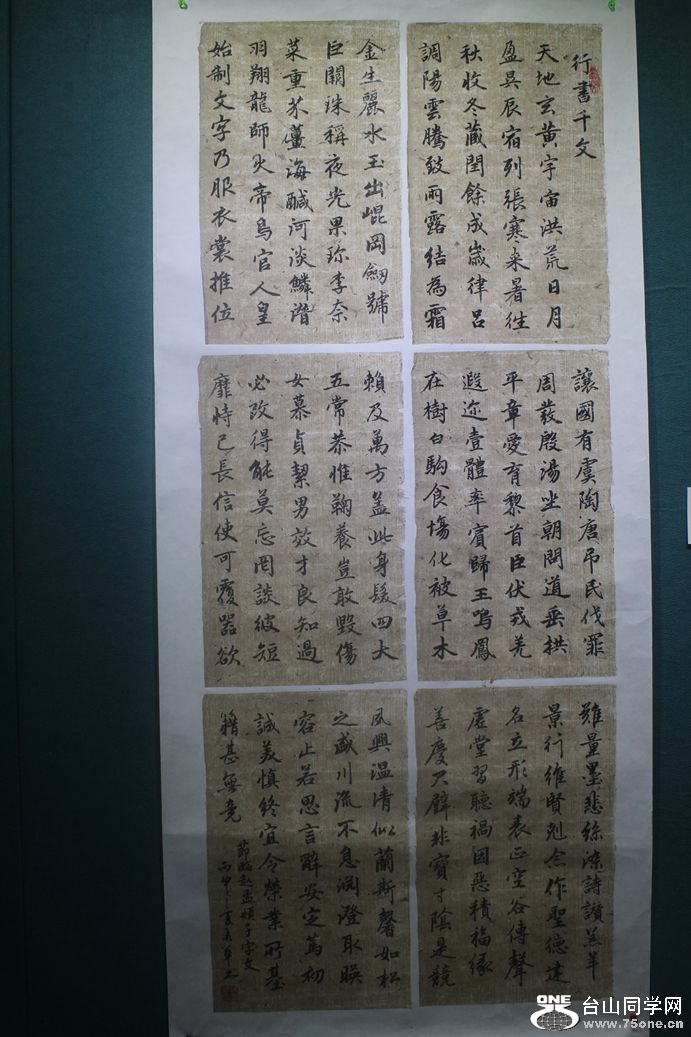 行書千文
天地玄黃宇宙洪荒日月
盈昃辰宿列張寒来暑徃
秋收冬藏閏餘成歲律呂
調陽雲騰致雨露結為霜
金生麗水玉出崐岡劔號
巨闕珠稱夜光果珎李奈
菜重芥薑海醎河淡鱗潛
羽翔龍師火帝鳥官人皇
始制文字乃服衣裳推位
讓國有虞陶唐吊民伐罪
周發殷湯坐朝問道垂拱
平章愛育黎首臣伏戎羌
遐迩壹體率賓歸王鳴鳳
在樹白駒食場化被草木
賴及萬方盖此身髮四大
五常恭惟鞠養豈敢毀傷
女慕貞絜男效才良知過
必改得能莫忘罔談彼短
靡恃己長信使可覆器欲
難量墨悲絲染詩讃羔羊
景行維賢剋念作聖德建
名立形端表正空谷傳聲
虛堂習聽禍因惡積福緣
善慶尺璧非寶寸陰是競
夙興温清似蘭斯馨如松
之盛川流不息淵澄取暎
容止若思言辭安定篤初
誠美慎終宜令榮業所基
籍甚無竟
節臨趙孟頫千字文
丙申夏
ONE
台山同学网
www.75one.cn